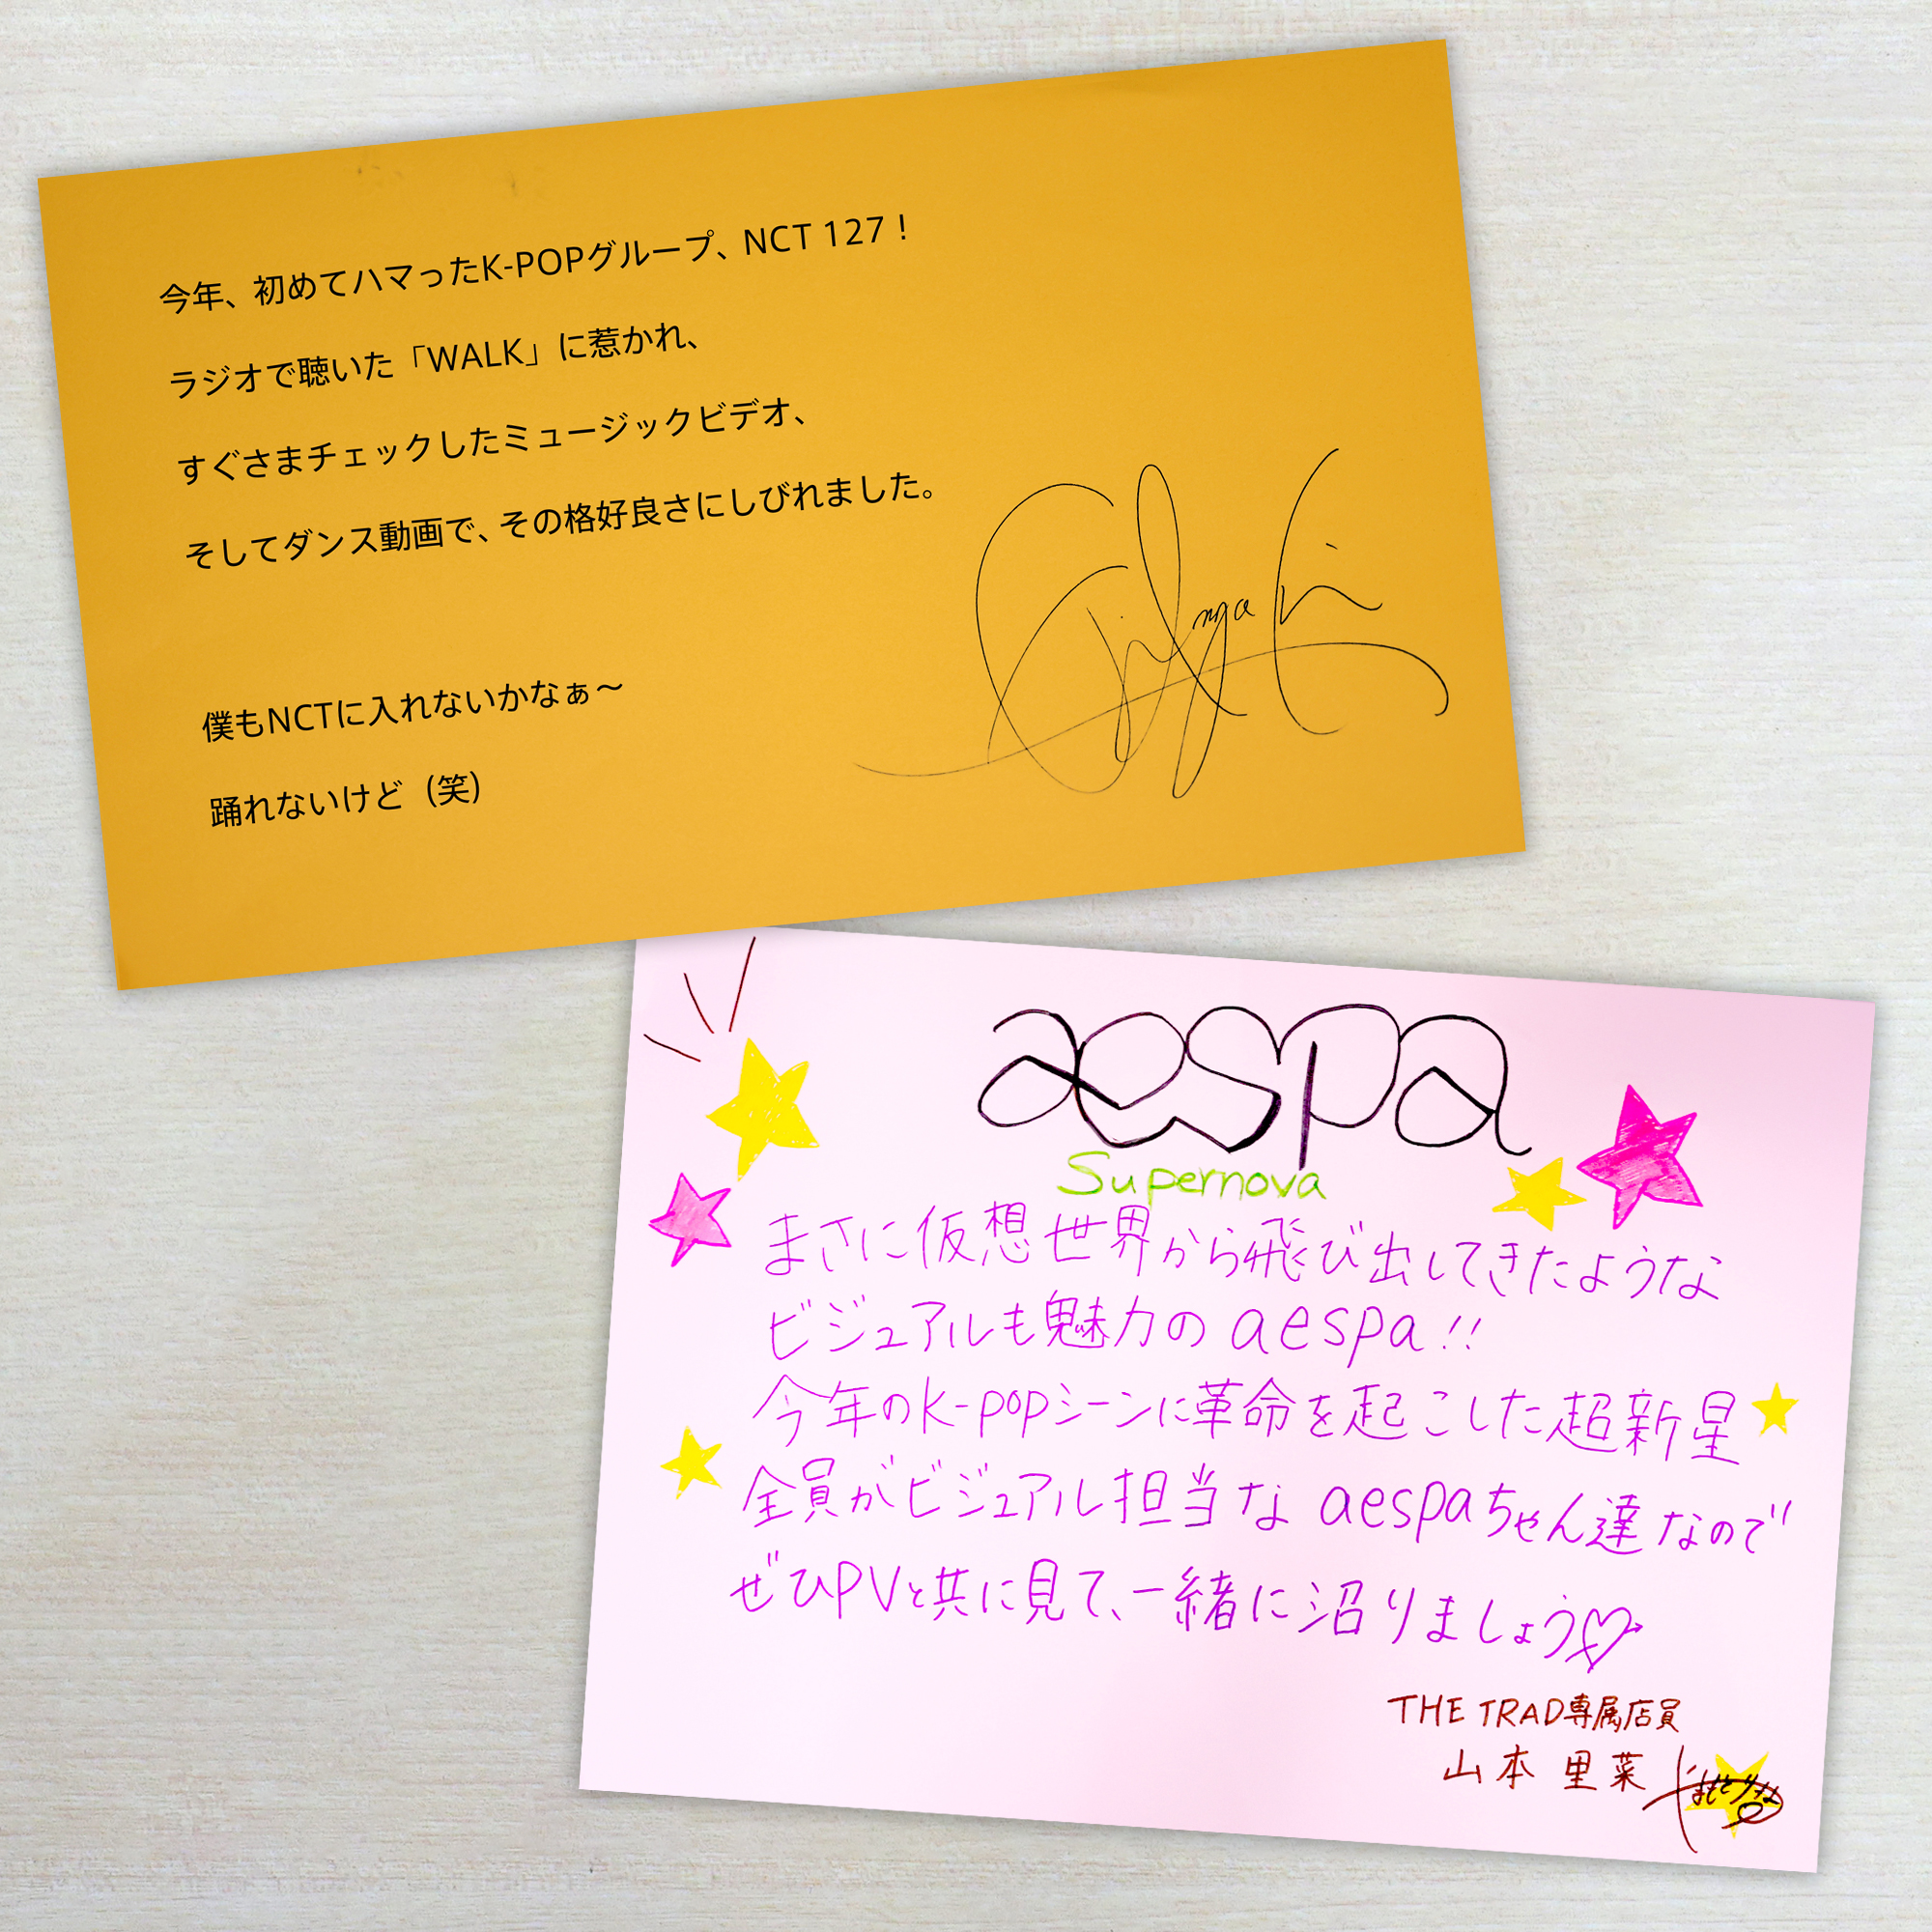 今年、初めてハマったK-POPグループ、NCT 127！
ラジオで聴いた「WALK」に惹かれ、
すぐさまチェックしたミュージックビデオ、
そしてダンス動画で、その格好良さにしびれました。
僕もNCTに入れないかなぁ～
踊れないけど（笑）
aespa
Supernova
まさに仮想世界から飛び出してきたような
ビジュアルも魅力の aespa!!
今年のK-popシーンに革命を起こした超新星
全員がビジュアル担当な aespaちゃん達なので
ぜひPVと共に見て、一緒に沼りましょう♡
THE TRAD専属店員
山本 里菜